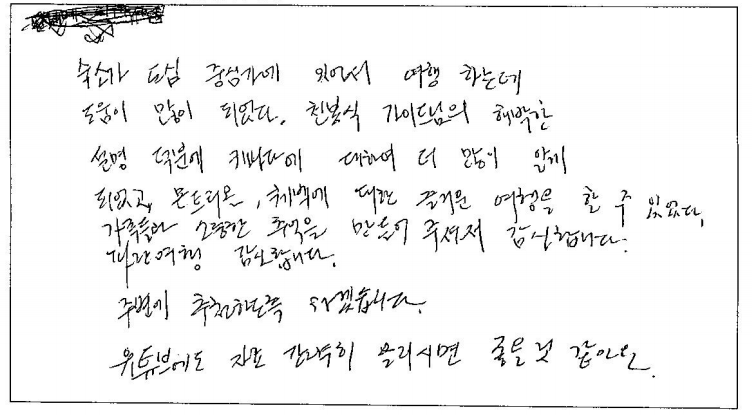 숙소가 도심 중심가에 있어서 여행 하는데
도움이 많이 되었다. 친봉식 가이드님의 해박한
설명 덕분에 캐나다에 대하여 더 많이 알게
되었고, 몬트리올, 퀘백에 대한 즐거운 여행을 할 수 있었다.
가족들과 소중한 추억을 만들어 주셔서 감사합니다.
여행 감사합니다.
주변에 추천하도록 하겠습니다.
유튜브에도 자료 올리시면 좋을것 같아요.